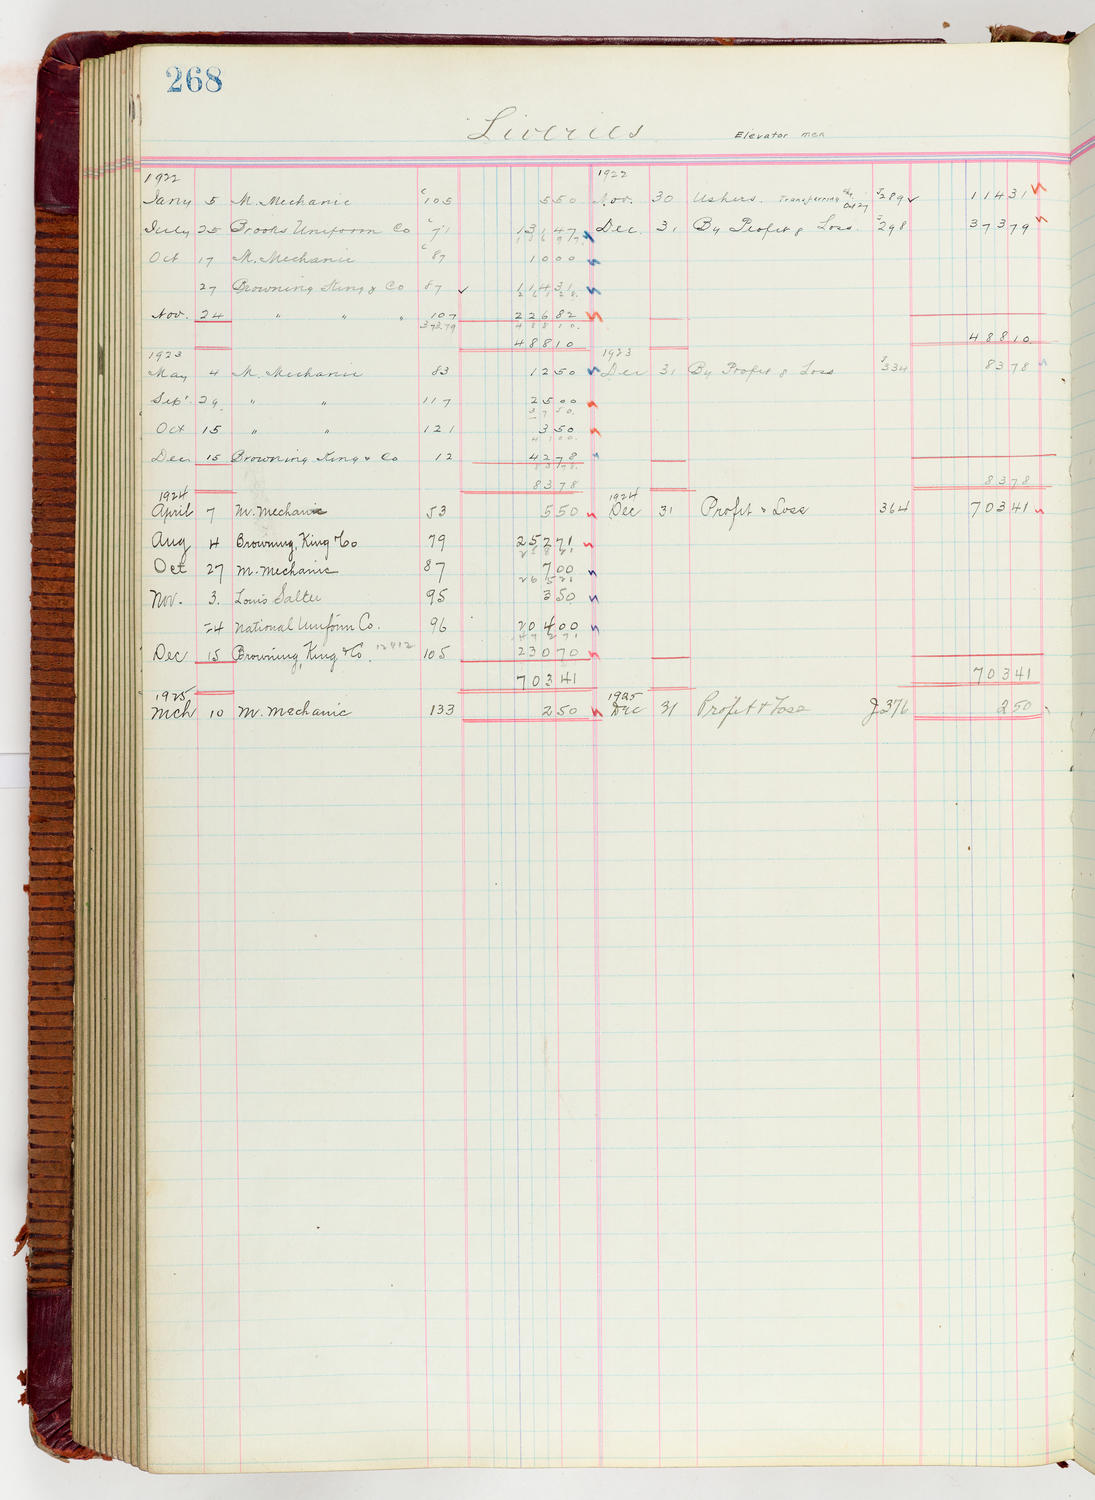 268
Liveries Elevator men
1922 1922
Jany 5 M. Mechanic c 105 550 Nov. 30 Ushers. Transferring Oct 27 J 289 ✓ 11431
July 25 Brooks Uniform Co c 71 13147 Dec. 31 By Profit & Loss. J 298 37379
13697.
Oct 17 M. Mechanic c 87 1000
27 Browning King & Co 87 ✓ 11431
26128.
Nov. 24 " " " 107 22682
373.79 48810.
48810 48810
1923 1923
May 4 M. Mechanic 83 1250 Dec 31 By Profit & Loss J 334 8378
Sep' 29. " " 117 2500
3750.
Oct 15 " " 121 350
4100.
Dec 15 Browning King & Co 12 4278
8378.
8378 8378
1924 1924
April 7 M. Mechanic 53 550 Dec 31 Profit & Loss 364 70341
Aug 4 Browning, King & Co 79 25271
25821
Oct 27 M. Mechanic 87 700
26521
Nov. 3. Louis Salter 95 350
24 National Uniform Co. 96 20400
47271
Dec 15 Browning, King & Co. 12412 105 23070
70341 70341
1925 1925
Mch 10 M. Mechanic 133 250 Dec 31 Profit & Loss J 376 250